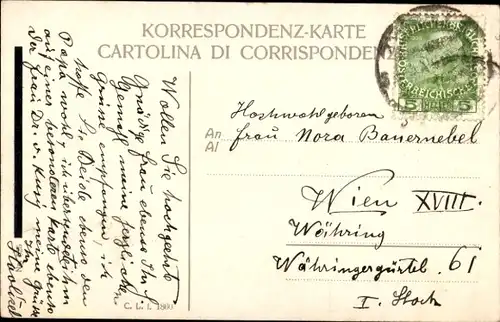 KORRESPONDENZ-KARTE
CARTOLINA DI CORRISPONDENZ
5 5
Hochwohlgeboren
An
Al
Frau Nora Bauernebel
Wien XVIII.
Währing
Währingergürtel 61
I. Stock
Wollen Sie hochgeehrte
Gnädige Frau ebenso Ihr
Gemahl meine herzlichen
Grüsse empfangen, ich
hoffe Sie Beide ebenso den
Papa wohl, ich
auf einer besonderen Karte ebenso
der Frau Dr. v. meine Grüsse
C. L. I. 1860